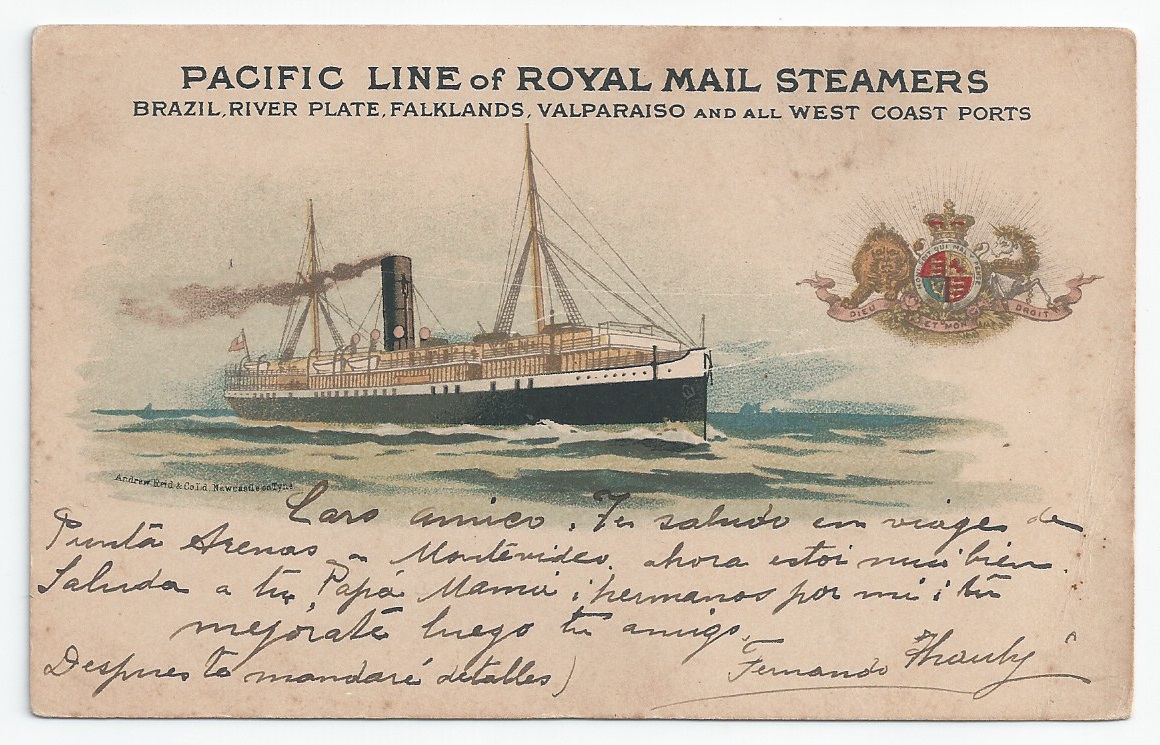 PACIFIC LINE of ROYAL MAIL STEAMERS
BRAZIL, RIVER PLATE, FALKLANDS, VALPARAISO AND ALL WEST COAST PORTS
DIEU ET MON DROIT
Andrew Reid & Co Ld Newcastle on Tyne
Caro amico. Te saludo en viage de
Punta Arenas a Montevideo, ahora estoi mui bien.
Saluda a tu Papá Mamá i hermanos por mi i tu
mejorate luego tu amigo,
Fernando
Despues te mandaré detalles)